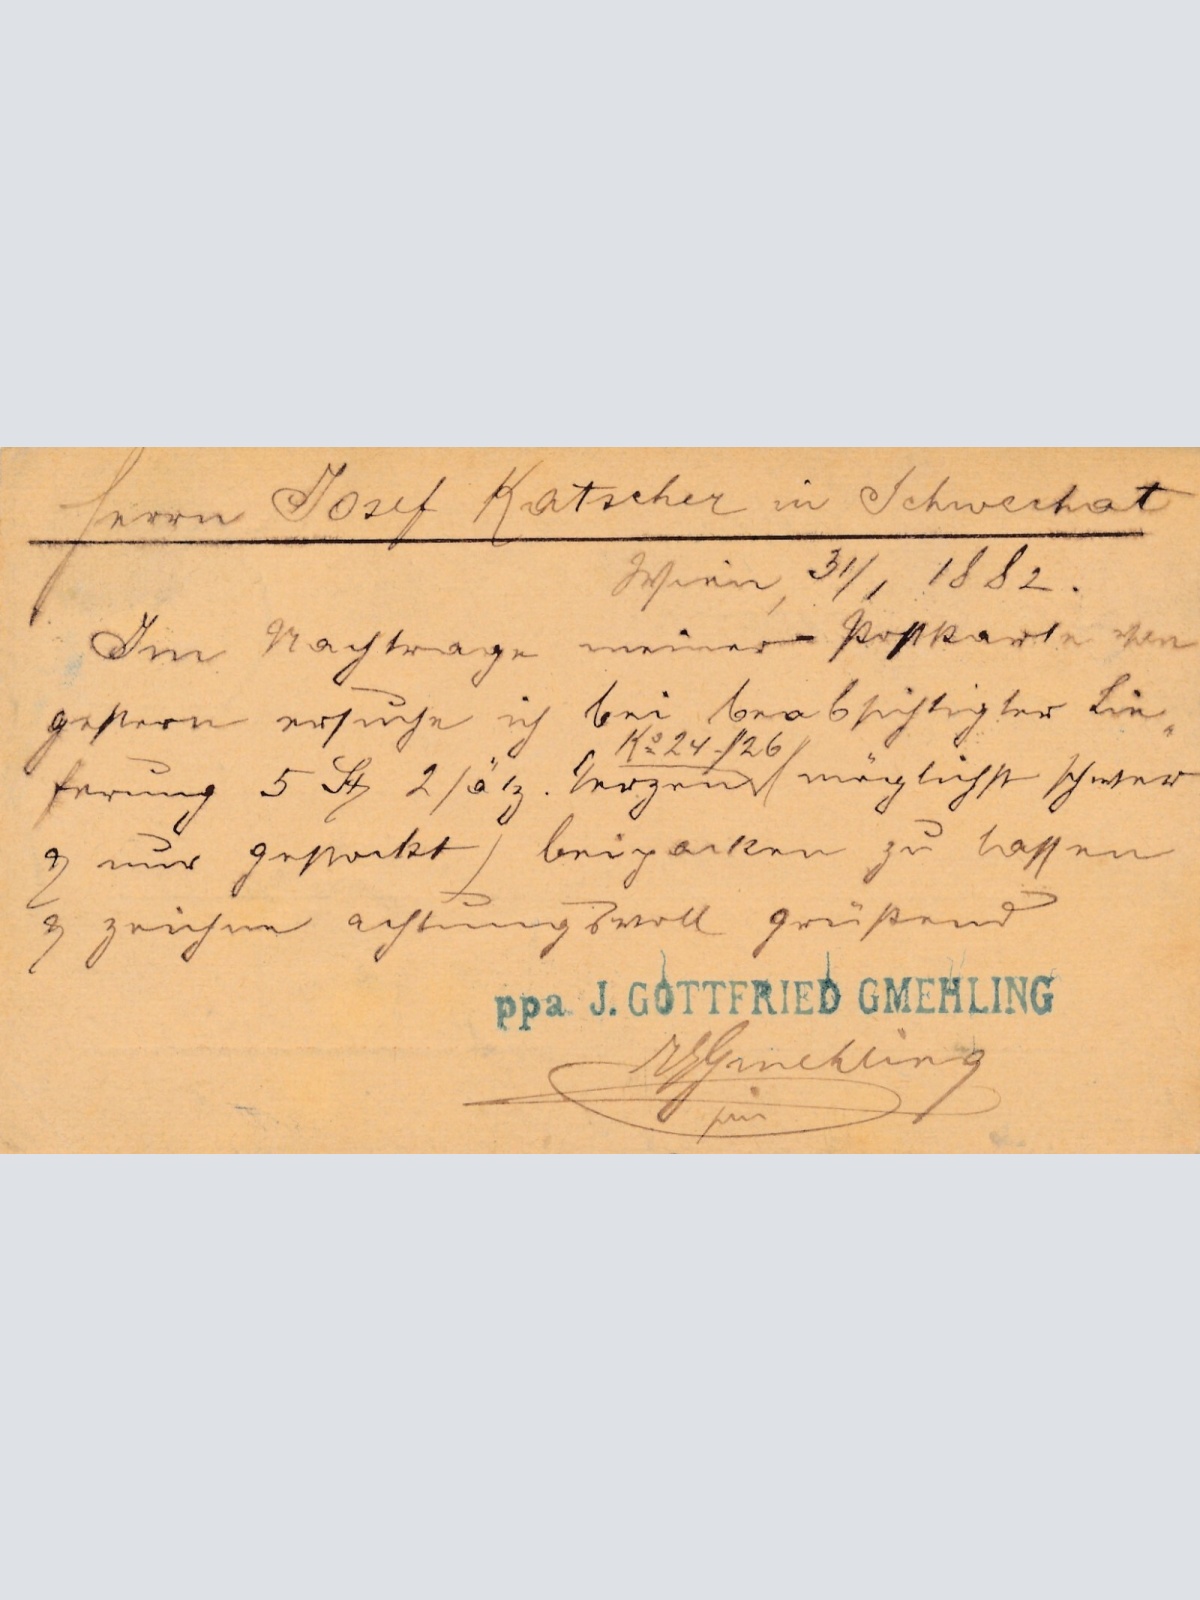 Herrn Josef Katscher in Schwechat
Wien, 31/1 1882.
Im Nachtrage meiner Postkarte von
gestern ersuche ich bei beabsichtigter Lie-
No 24-/26
ferung 5 St 2/ötz. (möglichst schwer
& nur gestockt) beipacken zu lassen
& zeichne achtungsvoll grüßend
ppa J. GOTTFRIED GMEHLING
Gmehling